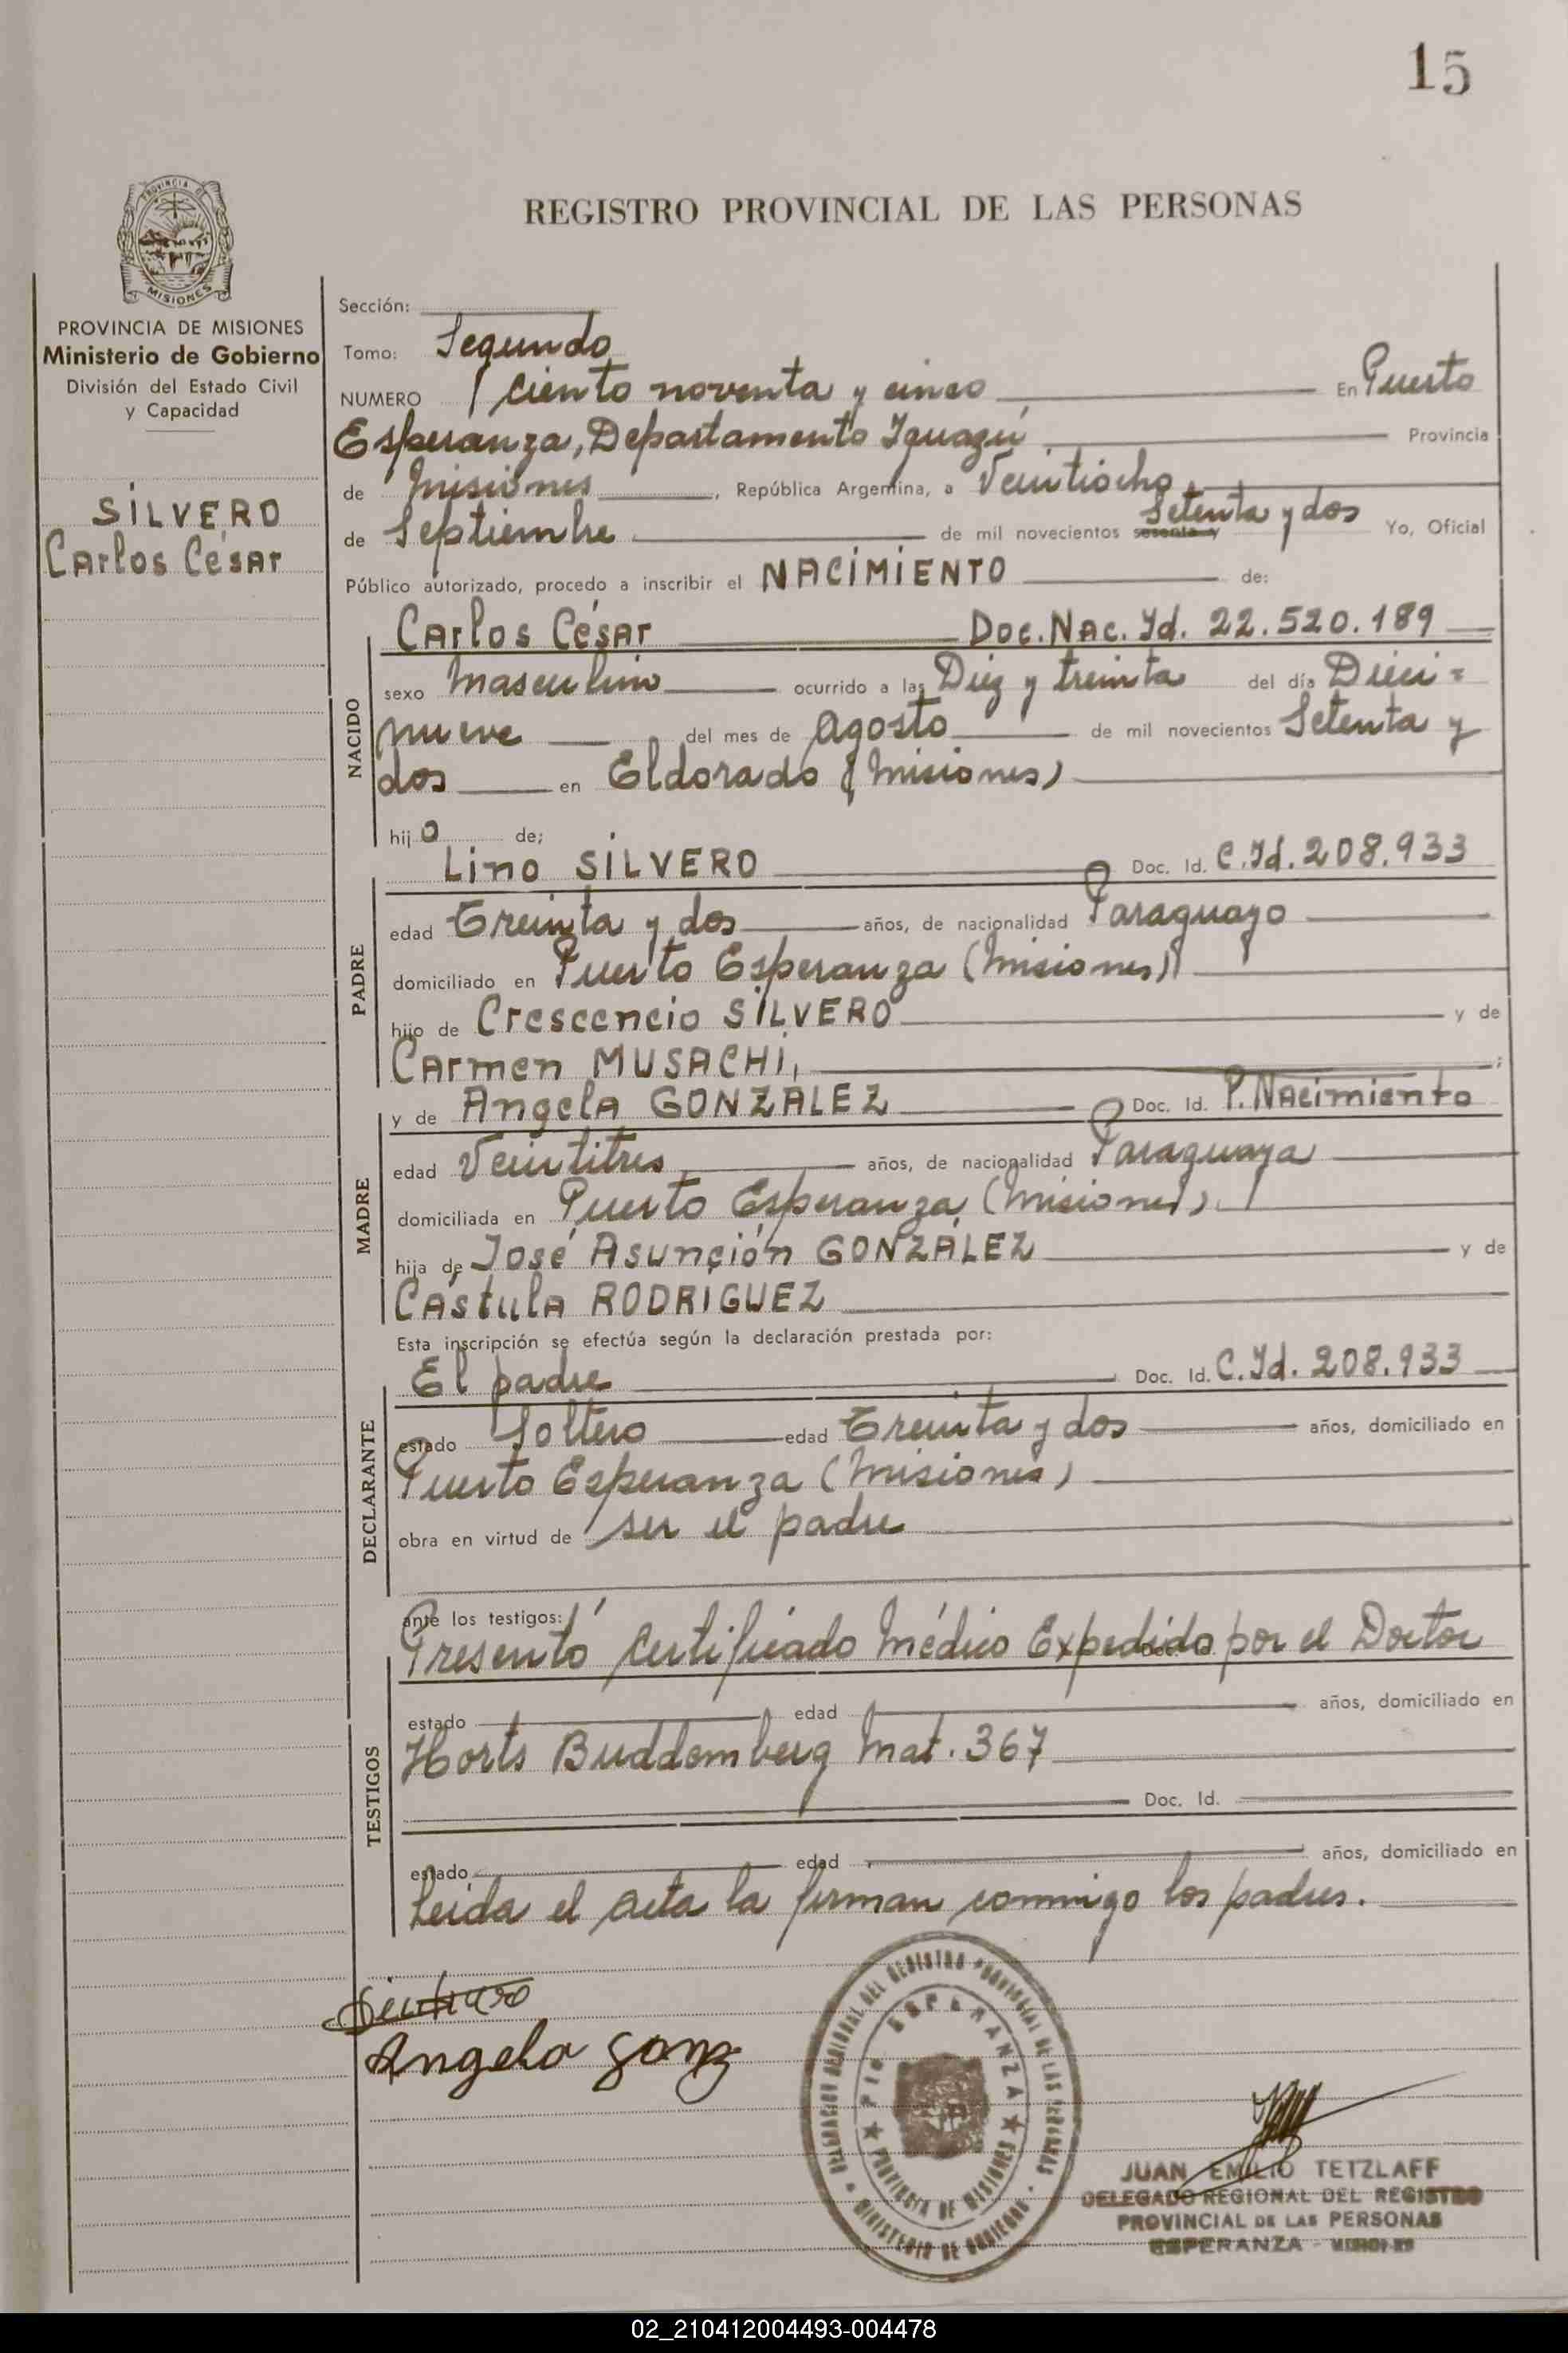 15
PROVINCIA DE
MISIONES
REGISTRO PROVINCIAL DE LAS PERSONAS
PROVINCIA DE MISIONES
Ministerio de Gobierno
División del Estado Civil
y Capacidad
SILVERO
Carlos César
Sección:
Tomo: Segundo
NUMERO ciento noventa y cinco En Puerto
Esperanza, Departamento Iguazú Provincia
de Misiones, República Argentina, a Veintiocho
de Septiembre de mil novecientos sesenta y Setenta y dos Yo, Oficial
Público autorizado, procedo a inscribir el NACIMIENTO de:
NACIDO
Carlos César Doc. Nac. Id. 22.520.189
sexo Masculino ocurrido a las Diez y treinta del día Dieci=
nueve del mes de Agosto de mil novecientos Setenta y
dos en Eldorado (Misiones)
hijo de;
PADRE
Lino SILVERO Doc. Id. C. Id. 208.933
edad Treinta y dos años, de nacionalidad Paraguayo
domiciliado en Puerto Esperanza (Misiones)
hijo de Crescencio SILVERO y de
Carmen MUSACHI, ;
MADRE
y de Angela GONZALEZ Doc. Id. P. Nacimiento
edad Veintitres años, de nacionalidad Paraguaya
domiciliada en Puerto Esperanza (Misiones).
hija de José Asunción GONZÁLEZ y de
Cástula RODRIGUEZ
Esta inscripción se efectúa según la declaración prestada por:
DECLARANTE
El padre Doc. Id. C. Id. 208.933
estado Soltero edad Treinta y dos años, domiciliado en
Puerto Esperanza (Misiones)
obra en virtud de ser el padre
TESTIGOS
ante los testigos:
Presentó Certificado Médico Expedido por el Doctor
estado edad años, domiciliado en
Horts Buddemberg Mat. 367
Doc. Id.
estado edad años, domiciliado en
Leída el acta la firman conmigo los padres.
Angela Gonz
DELEGACION REGIONAL DEL REGISTRO PROVINCIAL DE LAS PERSONAS
PTO ESPERANZA
PROVINCIA DE MISIONES
MINISTERIO DE GOBIERNO
JUAN EMILIO TETZLAFF
DELEGADO REGIONAL DEL REGISTRO
PROVINCIAL DE LAS PERSONAS
ESPERANZA - MISIONES
02_210412004493-004478